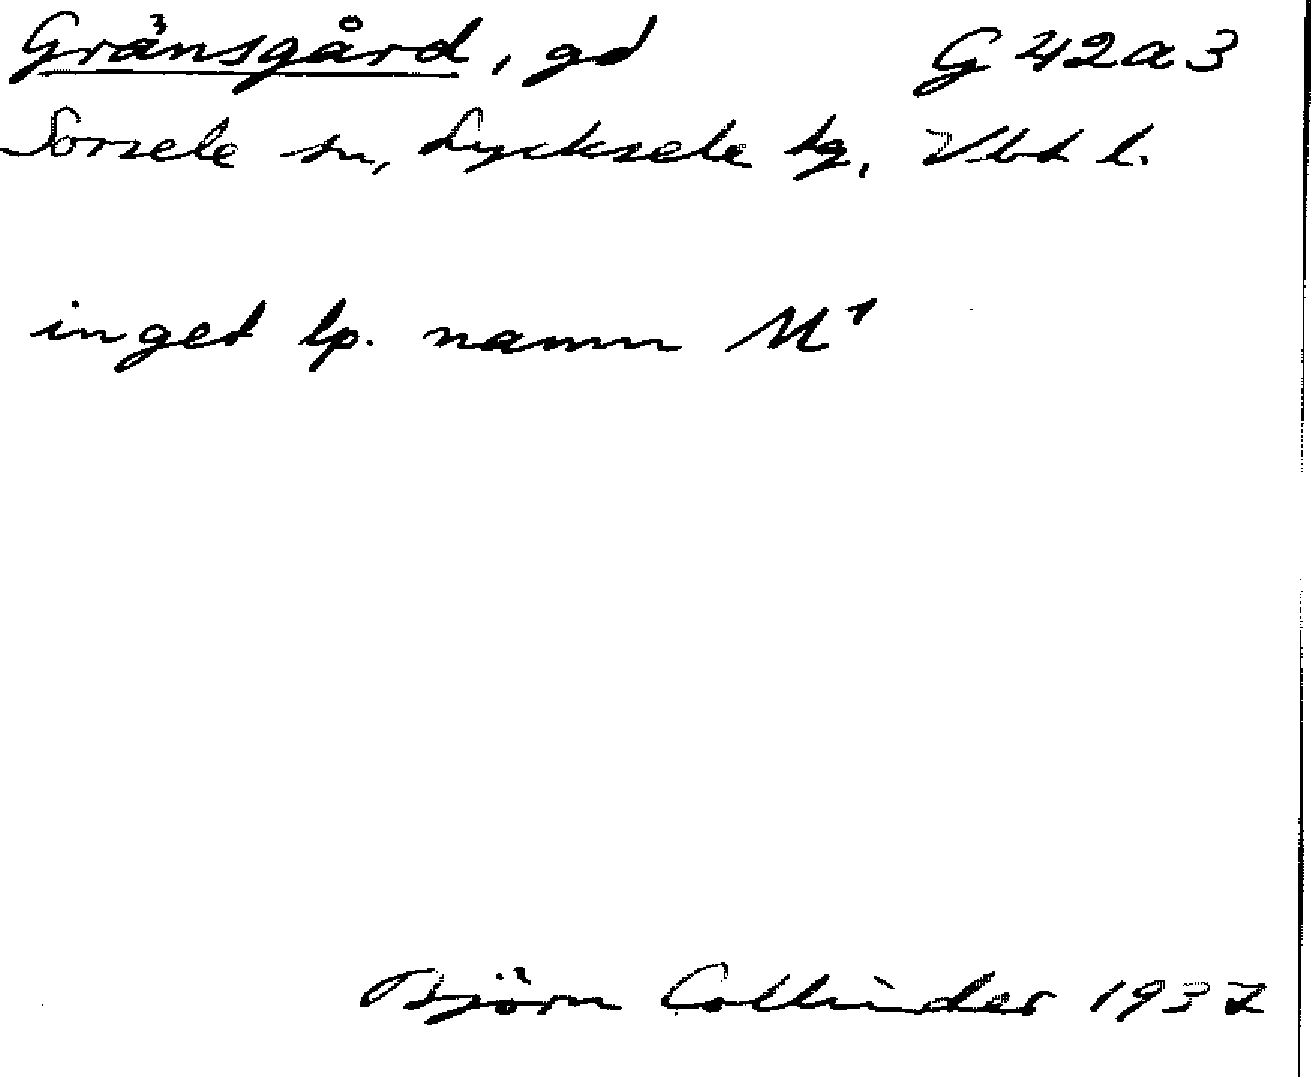 Gränsgård, gd G 42a3
Sorsele sn, Lycksele tg, Vbd l.
inget lp. namn M¹
Björn Collinder 1937